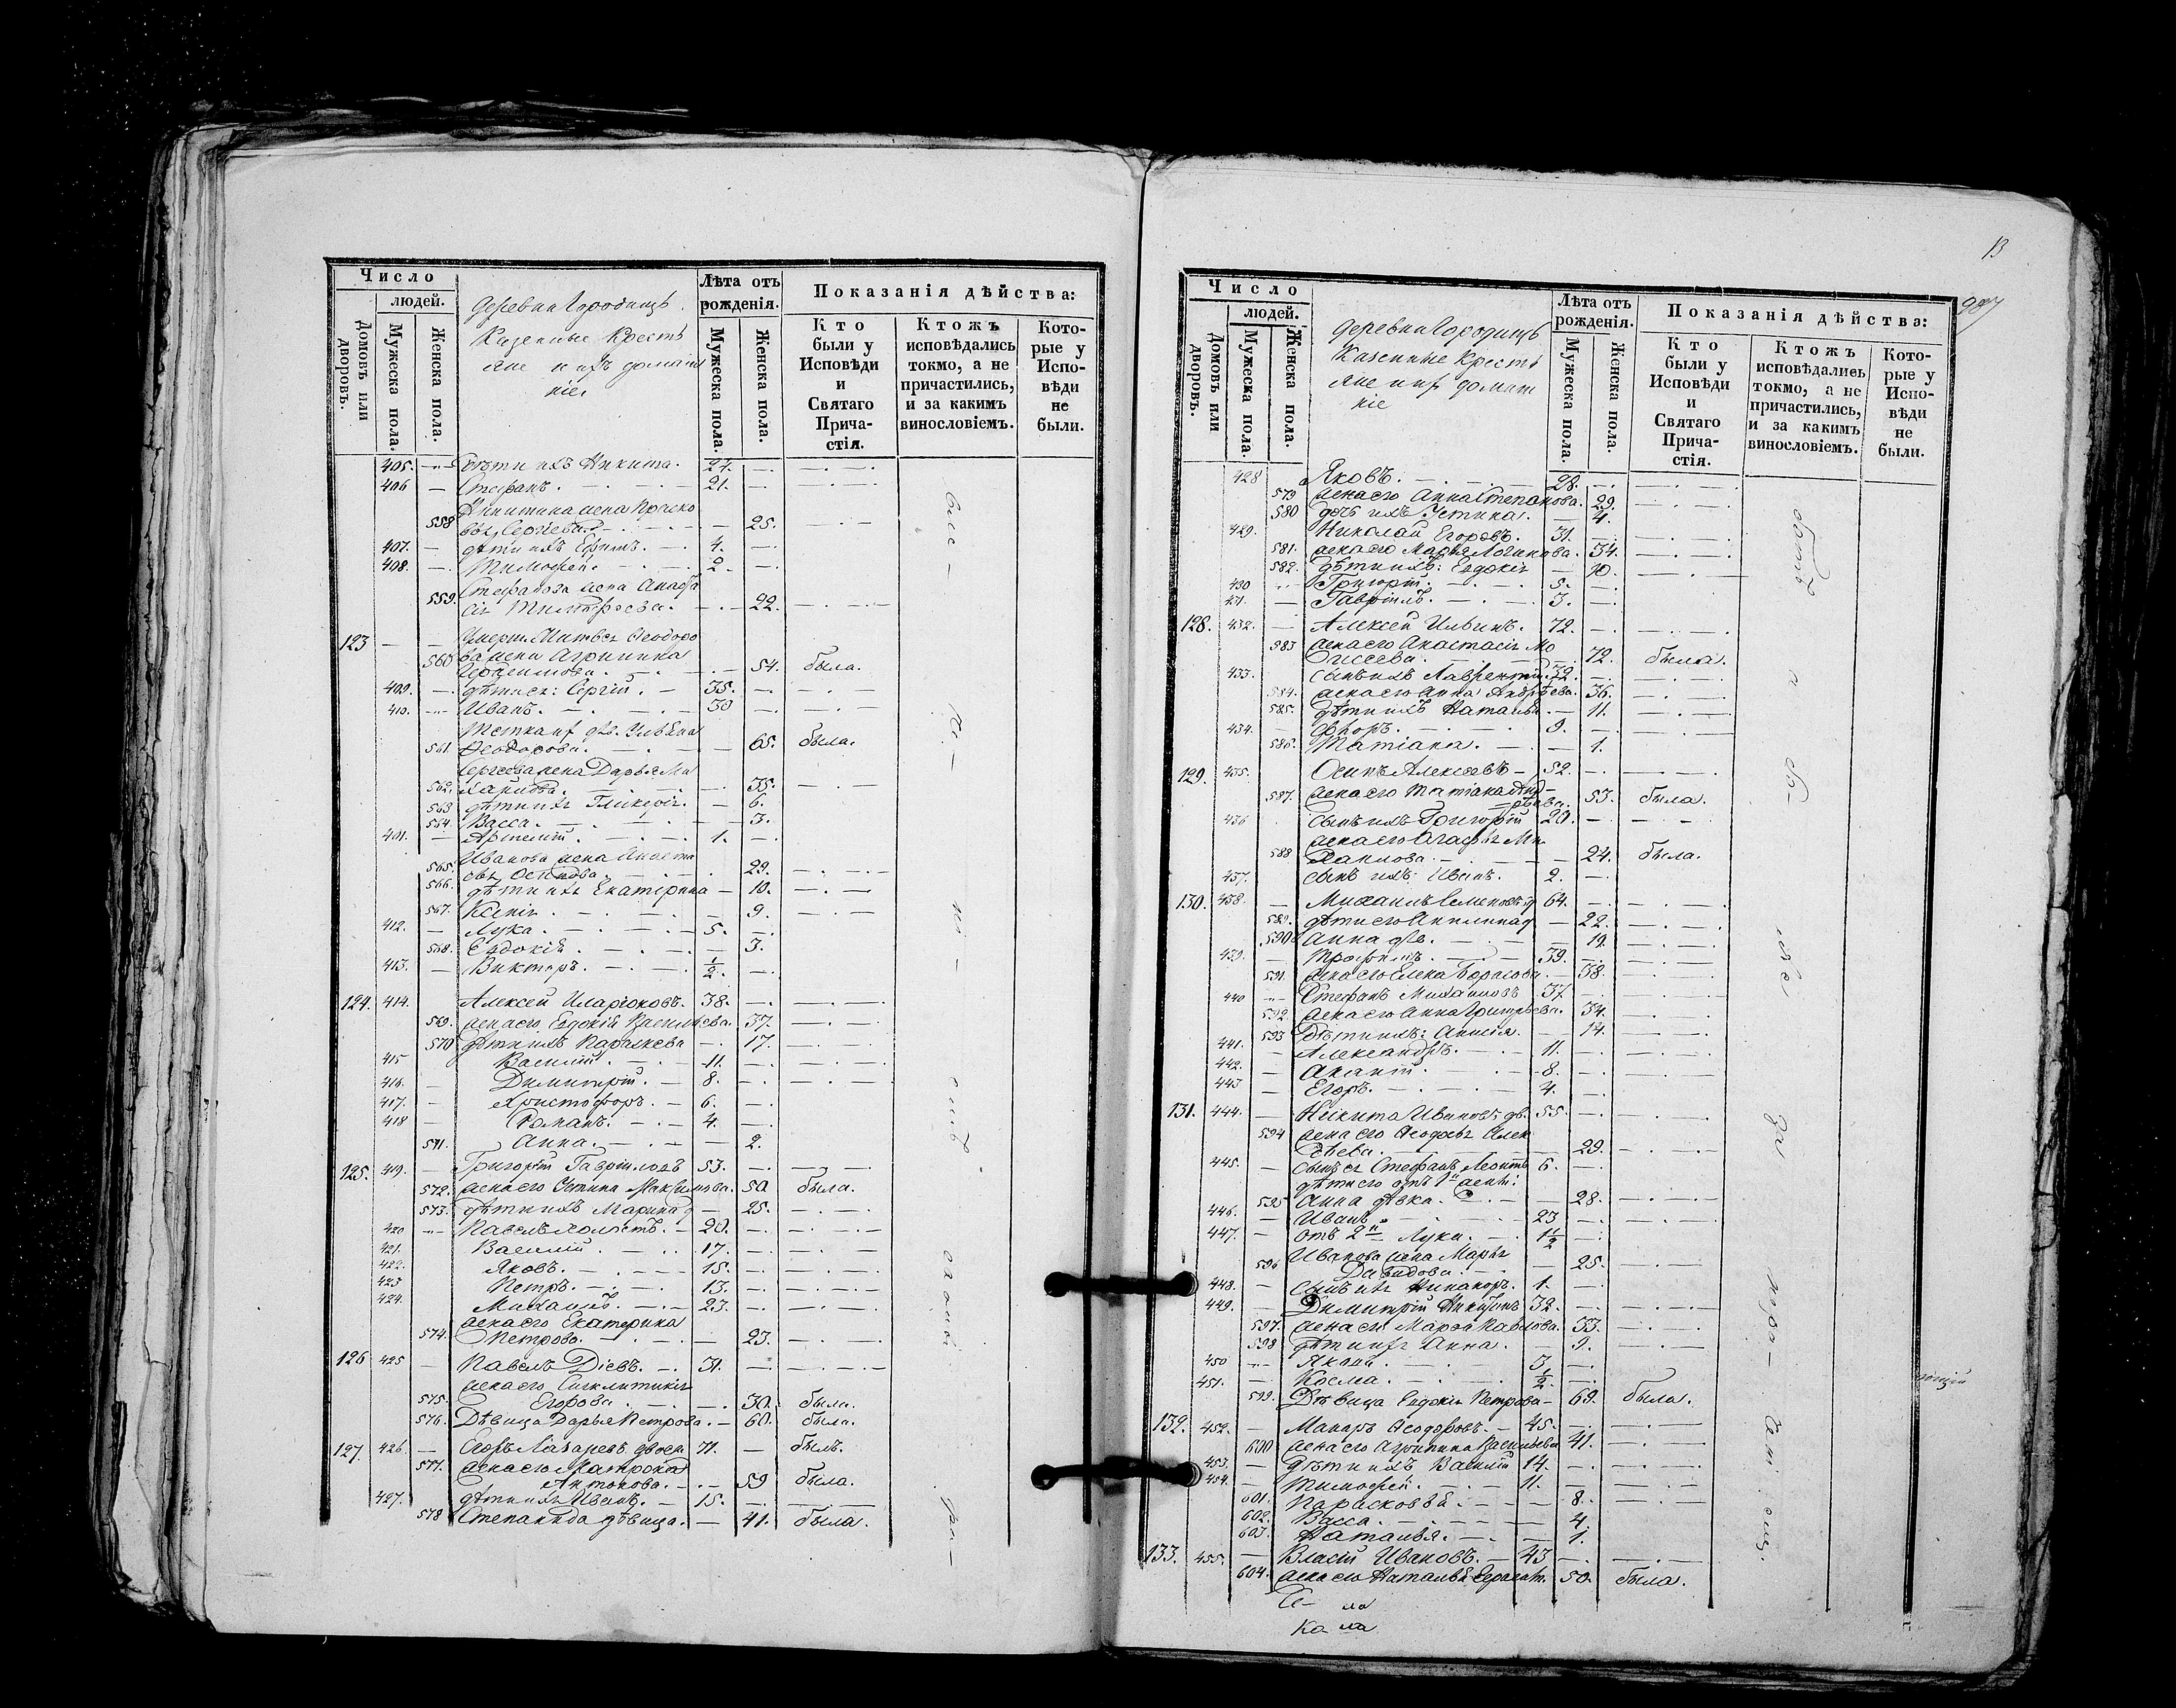 Число
людей.
Домовъ или дворовъ.
Мужеска пола.
Женска пола.
деревня Городищъ
Казенные Кресть
яне и ихъ домаш
ніе
Лѣта отъ
рожденія.
Мужеска пола.
Женска пола.
Показанія дѣйства:
Кто
были у
Исповѣди
и
Святаго
Прича-
стія.
Ктожъ
исповѣдались
токмо, а не
причастились,
и за какимъ
винословіемъ.
Кото-
рые у
Испо-
вѣди
не
были.
405. дѣти ихъ Никита. 27.
406 Стефанъ. 21.
Никитина жена Праско
558 вья Сергѣева 25.
407. дѣти ихъ Ефимъ. 4.
408. Тимофей. 2.
Стефанова жена Анаста
559. сія Тимофеева. 22.
123 Умерш. Матвея Ѳеодоро
560 ва жена Агрипина
54. была.
409. дѣти ея: Сергій. 35.
410. Иванъ. 30
561. Ѳеодорова. 65. была.
Сергеева жена Дарья Ма
562. 35.
563 дѣти ихъ Гликерія. 6.
564. Васса. 3.
401. Артемій. 1.
Иванова жена Анаста
565. сья Осипова. 29.
566. дѣти ихъ Екатерина 10.
567. Ксенія. 9.
412. Лука. 5.
568. Евдокія. 3.
413. Викторъ. 1/2.
124. 414. Алексей Иларіоновъ. 38.
569. жена его Евдокія Васильева. 37.
570 дѣти ихъ Параскева 17.
415 Василій. 11.
416. Димитрій. 8.
417. Христофоръ. 6.
418 Романъ. 4.
571. Анна. 2.
125. 419. Григорій Гавріиловъ 53.
572. жена его Устина Максимова. 50 была.
573. дѣти ихъ Марина 25.
420 Павелъ холостъ. 20.
421. Василій. 17.
422. Яковъ. 15.
423 Петръ. 13.
424. Михаилъ. 23.
жена его Екатерина
574. Петрова. 23.
126 425 Павелъ Діевъ. 31.
жена его Синклитикія
575. Егорова. 30. была.
576. Дѣвица Дарья Петрова. 60. была.
127. 426. Егоръ Лазаревъ 71. былъ.
577. жена его Матрона
Антонова. 59 была.
427. дѣти ихъ Иванъ. 15.
578 Степанида дѣвица. 41. была.
13
987
Число
людей.
Домовъ или дворовъ.
Мужеска пола.
Женска пола.
деревня Городищъ
Казенные Кресть
яне и их домаш
ніе
Лѣта отъ
рожденія.
Мужеска пола.
Женска пола.
Показанія дѣйства:
Кто
были у
Исповѣди
и
Святаго
Прича-
стія.
Ктожъ
исповѣдались
токмо, а не
причастились,
и за какимъ
винословіемъ.
Кото-
рые у
Испо-
вѣди
не
были.
428 Яковъ. 28.
579 жена его Анна Степанова. 29.
580 дочь ихъ Устина. 4.
429. Николай Егоровъ. 31.
581. жена его Марья Логинова. 34.
582. дѣти ихъ: Евдокія 10.
430 Григорій. 5.
431. Гавріилъ. 3.
128. 432. Алексей Ильинъ. 72.
583 жена его Анастасія Мо
исеева. 72. была.
433. сынъ ихъ Лаврентій. 32.
584. жена его Анна Андрѣева. 36.
585. дѣти ихъ Наталья 11.
434. Флоръ. 9.
586. Татіана. 1.
129. 435. Осипъ Алексѣевъ 52.
587. жена его Татіана 53. была.
436 сынъ ихъ Григорій 20.
жена его Агафія Ми
588 хаилова. 24. была.
437. сынъ ихъ: Иванъ. 2.
130. 438. Михаилъ Семеновъ 64.
589. дѣти его 22.
590 Анна дѣв. 19.
439. Трофимъ. 39.
591. жена его Елена Борисова. 38.
440 Стефанъ Михаиловъ 37.
592. жена его Анна Григорьева. 34.
593 Дѣти ихъ: Анисія. 14.
441. Александръ. 11.
442. Ананій. 8.
443 Егоръ. 4.
131. 444. Никита Ивановъ 55.
594 жена его Ѳеодосья Алек
сѣева. 29.
445. сынъ ея Стефанъ Леонть 6.
дѣти его отъ 1й жены:
595 Анна дѣвка. 28.
446. Иванъ 23
447. отъ 2й Лука. 1 1/2
596 Иванова жена Марья
Давидова. 25.
448. сынъ ихъ Никаноръ. 1.
449. Димитрій Никитинъ 32.
597. жена его Марья Павлова. 33.
598 дѣти ихъ Анна. 9.
450 3.
451. Косма. 1/2.
599. Дѣвица Евдокія Петрова 69. была.
132. 452. Макаръ Ѳеодоровъ. 45.
600 жена его Агрипина Васильева 41.
453. дѣти ихъ Василій 14.
454. Тимофей. 11.
601. Парасковья 8.
602. Васса. 4.
603. Наталья. 1.
133. 455. Власій Ивановъ. 43
604. жена его Наталья 50. была.